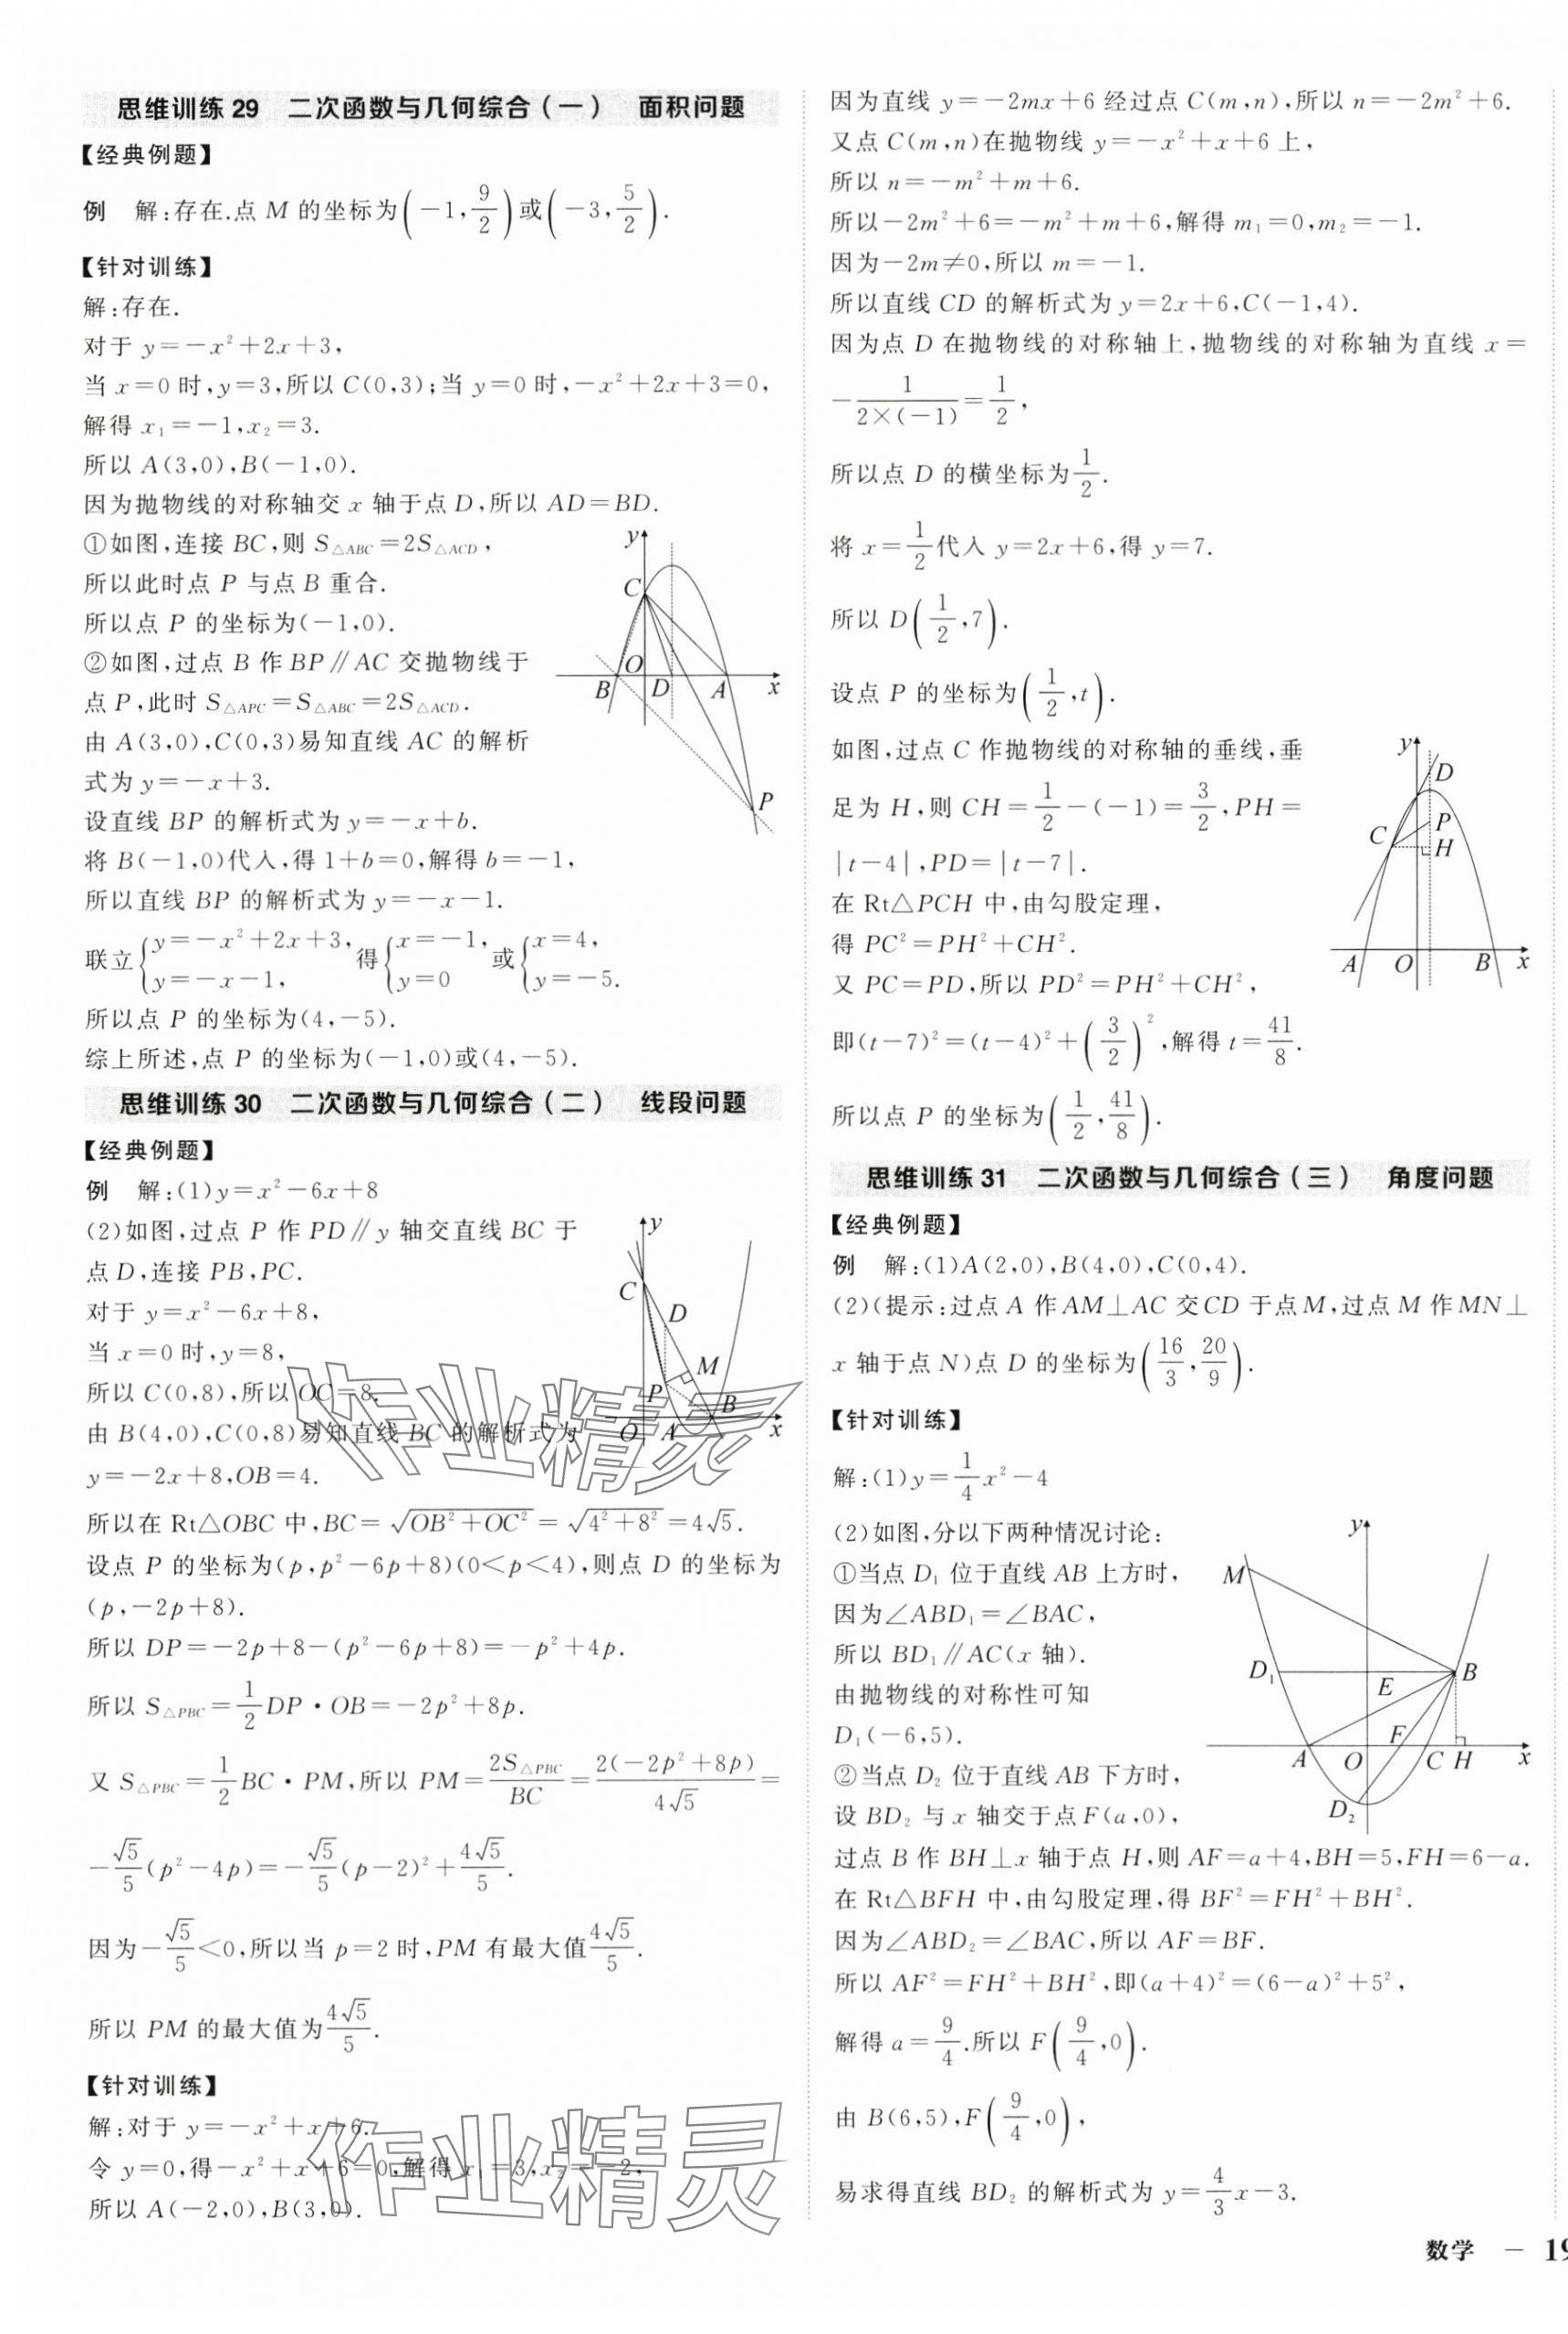 思维训练 29 二次函数与几何综合(一) 面积问题
【经典例题】
例 解:存在.点 M 的坐标为(-1,9/2)或(-3,5/2).
【针对训练】
解:存在.
对于 y=-x²+2x+3,
当 x=0 时,y=3,所以 C(0,3);当 y=0 时,-x²+2x+3=0,
解得 x₁=-1,x₂=3.
所以 A(3,0),B(-1,0).
因为抛物线的对称轴交 x 轴于点 D,所以 AD=BD.
①如图,连接 BC,则 S△ABC=2S△ACD,
所以此时点 P 与点 B 重合.
所以点 P 的坐标为(-1,0).
②如图,过点 B 作 BP∥AC 交抛物线于
点 P,此时 S△APC=S△ABC=2S△ACD.
由 A(3,0),C(0,3)易知直线 AC 的解析
式为 y=-x+3.
设直线 BP 的解析式为 y=-x+b.
将 B(-1,0)代入,得 1+b=0,解得 b=-1,
所以直线 BP 的解析式为 y=-x-1.
联立{y=-x²+2x+3, y=-x-1, 得{x=-1, y=0 或{x=4, y=-5.
所以点 P 的坐标为(4,-5).
综上所述,点 P 的坐标为(-1,0)或(4,-5).
y
C
O
B
D
A
x
P
思维训练 30 二次函数与几何综合(二) 线段问题
【经典例题】
例 解:(1)y=x²-6x+8
(2)如图,过点 P 作 PD∥y 轴交直线 BC 于
点 D,连接 PB,PC.
对于 y=x²-6x+8,
当 x=0 时,y=8,
所以 C(0,8),所以 OC=8.
由 B(4,0),C(0,8)易知直线 BC 的解析式为
y=-2x+8,OB=4.
y
C
D
M
P
B
O
A
x
所以在 Rt△OBC 中,BC=√(OB²+OC²)=√(4²+8²)=4√5.
设点 P 的坐标为(p,p²-6p+8)(0<p<4),则点 D 的坐标为
(p,-2p+8).
所以 DP=-2p+8-(p²-6p+8)=-p²+4p.
所以 S△PBC=1/2DP·OB=-2p²+8p.
又 S△PBC=1/2BC·PM,所以 PM=2S△PBC/BC=2(-2p²+8p)/4√5=
-√5/5(p²-4p)=-√5/5(p-2)²+4√5/5.
因为-√5/5<0,所以当 p=2 时,PM 有最大值4√5/5.
所以 PM 的最大值为4√5/5.
【针对训练】
解:对于 y=-x²+x+6.
令 y=0,得-x²+x+6=0,解得 x₁=3,x₂=-2,
所以 A(-2,0),B(3,0).
作业精灵
作业精灵
因为直线 y=-2mx+6 经过点 C(m,n),所以 n=-2m²+6.
又点 C(m,n)在抛物线 y=-x²+x+6 上,
所以 n=-m²+m+6.
所以-2m²+6=-m²+m+6,解得 m₁=0,m₂=-1.
因为-2m≠0,所以 m=-1.
所以直线 CD 的解析式为 y=2x+6,C(-1,4).
因为点 D 在抛物线的对称轴上,抛物线的对称轴为直线 x=
-1/(2×(-1))=1/2,
所以点 D 的横坐标为1/2.
将 x=1/2代入 y=2x+6,得 y=7.
所以 D(1/2,7).
设点 P 的坐标为(1/2,t).
如图,过点 C 作抛物线的对称轴的垂线,垂
足为 H,则 CH=1/2-(-1)=3/2,PH=
|t-4|,PD=|t-7|.
在 Rt△PCH 中,由勾股定理,
得 PC²=PH²+CH².
又 PC=PD,所以 PD²=PH²+CH²,
即(t-7)²=(t-4)²+(3/2)²,解得 t=41/8.
所以点 P 的坐标为(1/2,41/8).
y
D
P
C
H
A
O
B
x
思维训练 31 二次函数与几何综合(三) 角度问题
【经典例题】
例 解:(1)A(2,0),B(4,0),C(0,4).
(2)(提示:过点 A 作 AM⊥AC 交 CD 于点 M,过点 M 作 MN⊥
x 轴于点 N)点 D 的坐标为(16/3,20/9).
【针对训练】
解:(1)y=1/4x²-4
(2)如图,分以下两种情况讨论:
①当点 D₁ 位于直线 AB 上方时,
因为∠ABD₁=∠BAC,
所以 BD₁∥AC(x 轴).
由抛物线的对称性可知
D₁(-6,5).
②当点 D₂ 位于直线 AB 下方时,
设 BD₂ 与 x 轴交于点 F(a,0),
y
M
D₁
B
E
F
A
O
C
H
x
D₂
过点 B 作 BH⊥x 轴于点 H,则 AF=a+4,BH=5,FH=6-a.
在 Rt△BFH 中,由勾股定理,得 BF²=FH²+BH².
因为∠ABD₂=∠BAC,所以 AF=BF.
所以 AF²=FH²+BH²,即(a+4)²=(6-a)²+5²,
解得 a=9/4.所以 F(9/4,0).
由 B(6,5),F(9/4,0),
易求得直线 BD₂ 的解析式为 y=4/3x-3.
数学 — 19